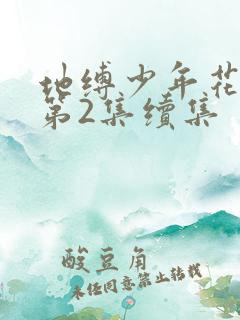 地缚少年花
第2集续集
酸豆角
未经同意禁止转载